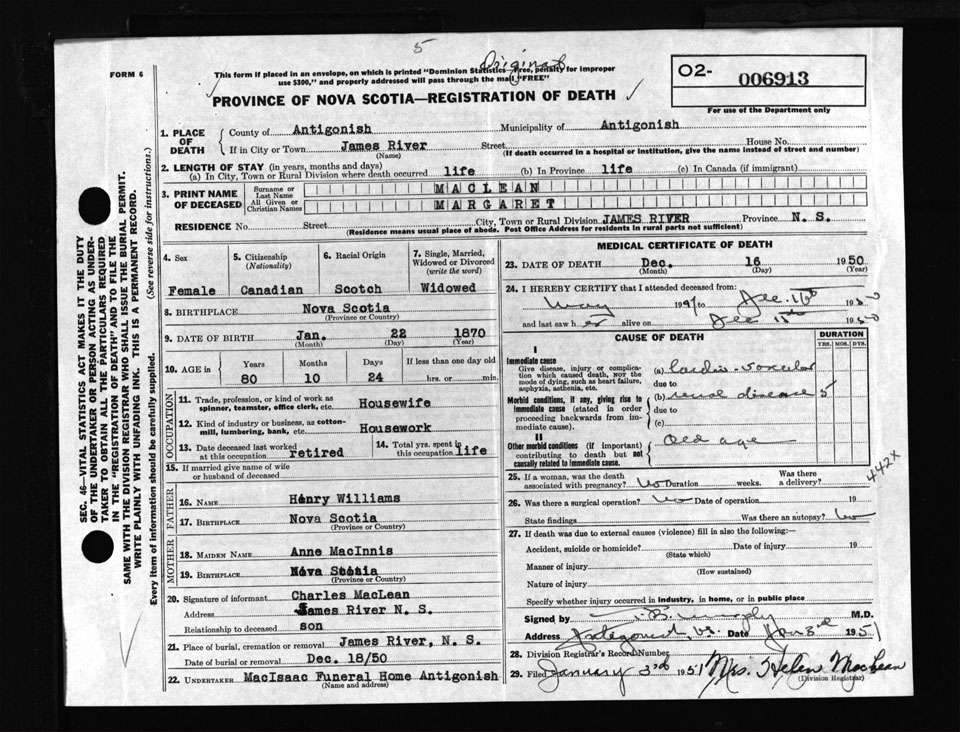 5
Original
FORM 6
This form if placed in an envelope, on which is printed "Dominion Statistics—Free, penalty for improper
use $300," and properly addressed will pass through the mail "FREE"
PROVINCE OF NOVA SCOTIA—REGISTRATION OF DEATH
O2- 006913
For use of the Department only
SEC. 46—VITAL STATISTICS ACT MAKES IT THE DUTY
OF THE UNDERTAKER OR PERSON ACTING AS UNDER-
TAKER TO OBTAIN ALL THE PARTICULARS REQUIRED
IN THE "REGISTRATION OF DEATH" AND TO FILE THE
SAME WITH THE DIVISION REGISTRAR WHO SHALL ISSUE THE BURIAL PERMIT.
WRITE PLAINLY WITH UNFADING INK. THIS IS A PERMANENT RECORD.
Every item of information should be carefully supplied. (See reverse side for instructions.)
1. PLACE OF DEATH County of Antigonish Municipality of Antigonish
If in City or Town James River Street House No.
(Name) (If death occurred in a hospital or institution, give the name instead of street and number)
2. LENGTH OF STAY (in years, months and days)
(a) In City, Town or Rural Division where death occurred life (b) In Province life (c) In Canada (if immigrant)
3. PRINT NAME OF DECEASED Surname or Last Name MACLEAN
All Given or Christian Names MARGARET
RESIDENCE No. Street City, Town or Rural Division JAMES RIVER Province N. S.
(Residence means usual place of abode. Post Office Address for residents in rural parts not sufficient)
4. Sex 5. Citizenship (Nationality) 6. Racial Origin 7. Single, Married, Widowed or Divorced (write the word)
Female Canadian Scotch Widowed
8. BIRTHPLACE Nova Scotia
(Province or Country)
9. DATE OF BIRTH Jan. 22 1870
(Month) (Day) (Year)
10. AGE in Years Months Days If less than one day old
80 10 24 hrs. or min.
OCCUPATION
11. Trade, profession or kind of work as spinner, teamster, office clerk, etc. Housewife
12. Kind of industry or business, as cotton-mill, lumbering, bank, etc. Housework
13. Date deceased last worked at this occupation retired 14. Total yrs. spent in this occupation life
15. If married give name of wife or husband of deceased
FATHER
16. NAME Henry Williams
17. BIRTHPLACE Nova Scotia
(Province or Country)
MOTHER
18. MAIDEN NAME Anne MacInnis
19. BIRTHPLACE Nova Scotia
(Province or Country)
20. Signature of informant Charles MacLean
Address James River N. S.
Relationship to deceased son
21. Place of burial, cremation or removal James River, N. S.
Date of burial or removal Dec. 18/50
22. UNDERTAKER MacIsaac Funeral Home Antigonish
(Name and address)
MEDICAL CERTIFICATE OF DEATH
23. DATE OF DEATH Dec. 16 1950
(Month) (Day) (Year)
24. I HEREBY CERTIFY that I attended deceased from:
May 194 to Dec. 16th 1950
and last saw her alive on Dec 15th 1950
CAUSE OF DEATH DURATION
YRS. MOS. DYS.
I
Immediate cause
Give disease, injury or complication which caused death, NOT the mode of dying, such as heart failure, asphyxia, asthenia, etc.
(a) Cardio-vascular
due to
Morbid conditions, if any, giving rise to immediate cause (stated in order proceeding backwards from immediate cause).
(b) renal disease 5
due to
(c)
II
Other morbid conditions (if important) contributing to death but not causally related to immediate cause.
Old age
442X
25. If a woman, was the death associated with pregnancy? No Duration weeks. Was there a delivery?
26. Was there a surgical operation? No Date of operation 19
State findings Was there an autopsy? No
27. If death was due to external causes (violence) fill in also the following:—
Accident, suicide or homicide? Date of injury 19
(State which)
Manner of injury
(How sustained)
Nature of injury
Specify whether injury occurred in industry, in home, or in public place
Signed by Murphy M.D.
Address Antigonish, N.S. Date Jan 3rd 1951
28. Division Registrar's Record Number
29. Filed January 3rd 1951 Mrs. Helen MacLean
(Division Registrar)